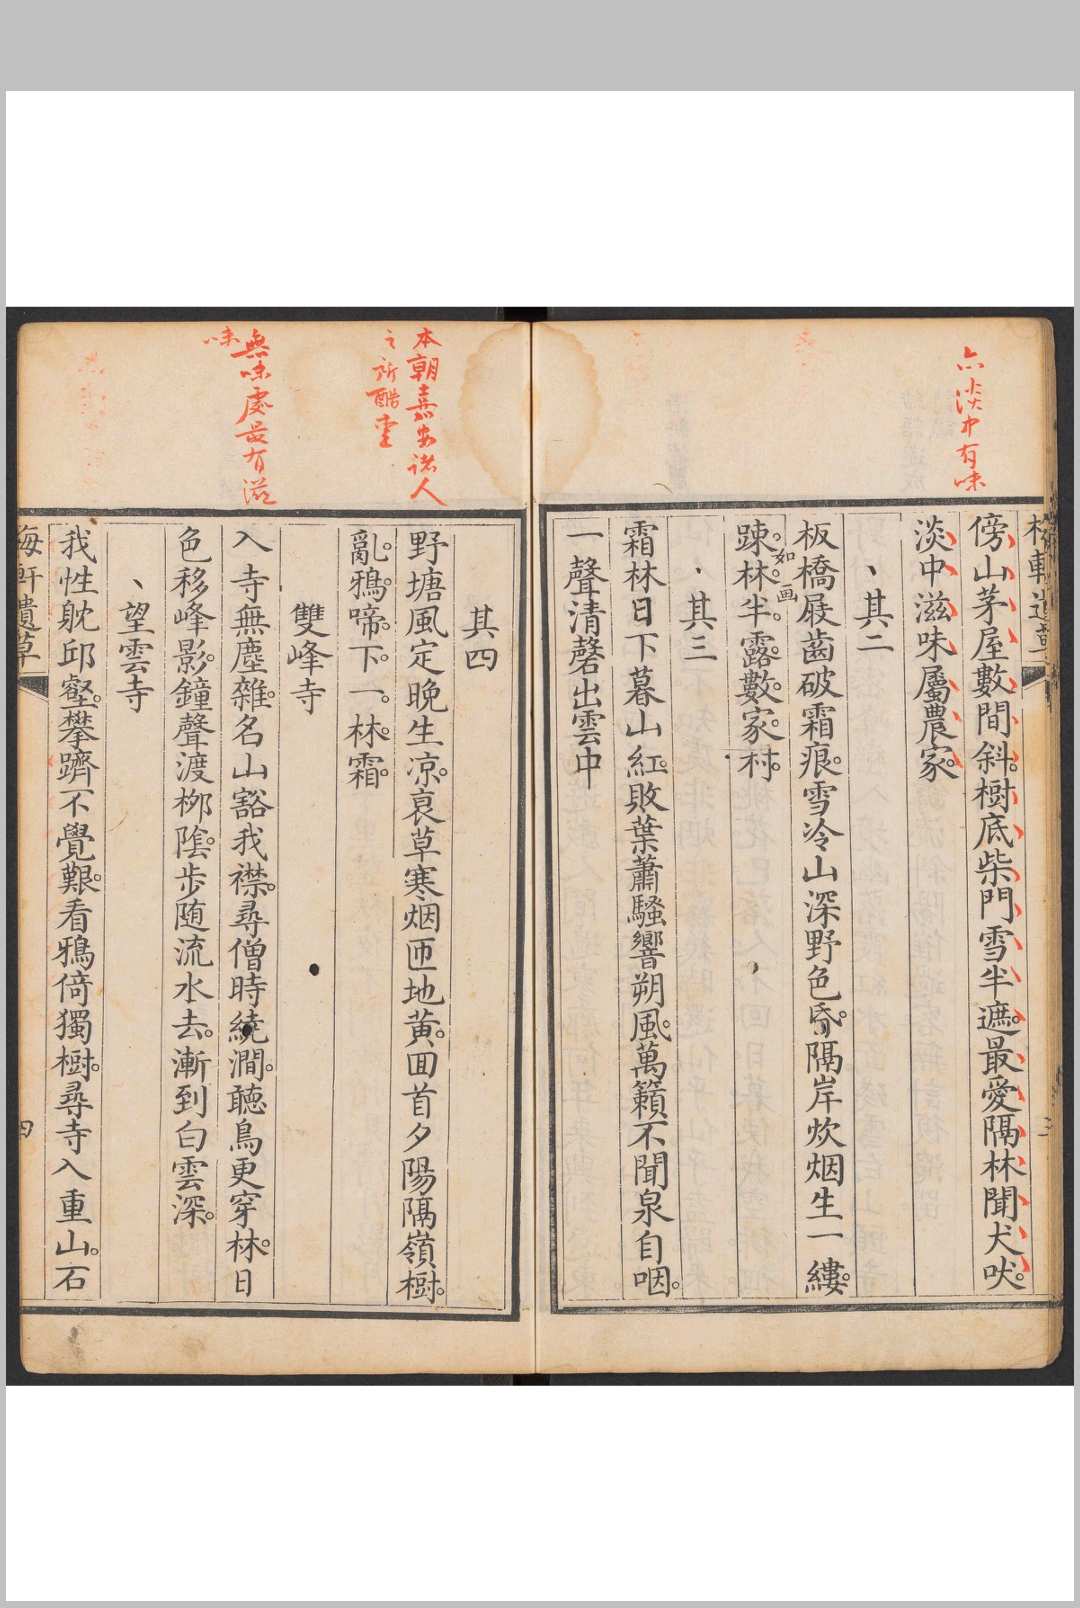 傍山茅屋數間斜樹底柴門雪半遮最愛隔林聞犬吠
淡中滋味屬農家
其二
板橋屐齒破霜痕雪冷山深野色昏隔岸炊烟生一縷
踈林半露數家村
如画
其三
霜林日下暮山紅敗葉蕭騷響朔風萬籟不聞泉自咽
一聲清磬出雲中
淡中有味
三
其四
野塘風定晚生凉衰草寒烟匝地黄回首夕陽隔嶺樹
亂鴉啼下一林霜
雙峰寺
入寺無塵雜名山豁我襟尋僧時繞澗聽鳥更穿林日
色移峰影鐘聲渡栁陰步随流水去漸到白雲深
望雲寺
我性躭邱壑攀躋不覺艱看鴉倚獨樹尋寺入重山石
本朝嘉安諸人
之所
無味處最有滋
味
梅軒遺草
四